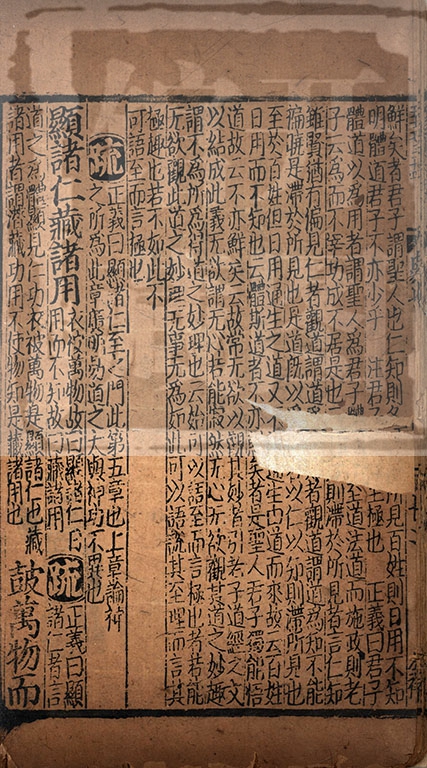 鮮矣者君子謂聖人也仁知則各所見百姓則日用不知
明體道君子不亦少乎 注君子至極也 正義曰君子
體道以為用者謂聖人為君子體至道法道而施政則老
子云為而不宰功成不居是也則滯於所見者言仁知
雖賢猶有偏見仁者觀道謂道為者觀道謂道為知不能
徧曉是滯於所見也是道既以者以仁以知則滯所見也
至於百姓但日用通生之道又不通生由道而來故云百姓
日用而不知也云體斯道者不亦矣者是聖人君子獨能悟
道故云不亦鮮矣云故常无欲以觀其妙者引老子道經之文
以結成此義无欲謂无心若能寂然无心无欲觀其道之妙趣
謂不為所為得道之妙理也云始可以語至而言極也者若能
无欲觀此道之妙理无事无為如此可以語說其至理而言其
極趣也若不如此不
可語至而言極也
疏 正義曰顯諸仁至之門此第五章也上章論神
之所為此章廣明易道之大與神功不異也
顯諸仁藏諸用
衣被萬物故曰顯諸仁日
用而不知故曰藏諸用
疏 正義曰顯
諸仁者言
道之為體顯見仁功衣被萬物是顯諸仁也藏
諸用者謂潛藏功用不使物知是藏諸用也
鼓萬物而